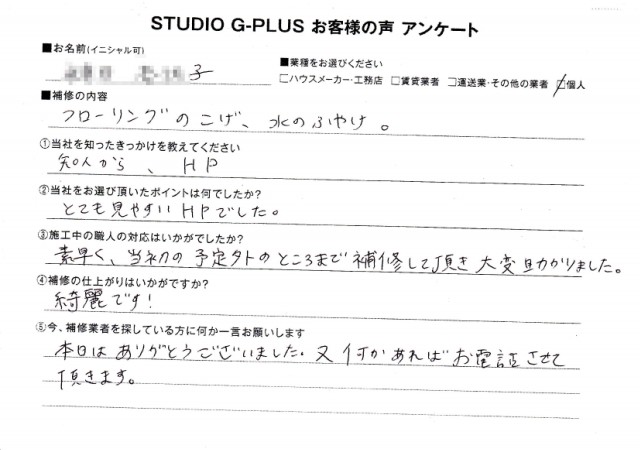 STUDIO G-PLUS お客様の声 アンケート
■お名前(イニシャル可)
子
■業種をお選びください
□ハウスメーカー・工務店 □賃貸業者 □運送業・その他の業者 □個人
■補修の内容
フローリングのこげ、水のふやけ。
①当社を知ったきっかけを教えてください
知人から、HP
②当社をお選び頂いたポイントは何でしたか?
とても見やすいHPでした。
③施工中の職人の対応はいかがでしたか?
素早く、当初の予定外のところまで補修して頂き大変助かりました。
④補修の仕上がりはいかがですか?
綺麗です!
⑤今、補修業者を探している方に何か一言お願いします
本日はありがとうございました。又何かあればお電話させて
頂きます。